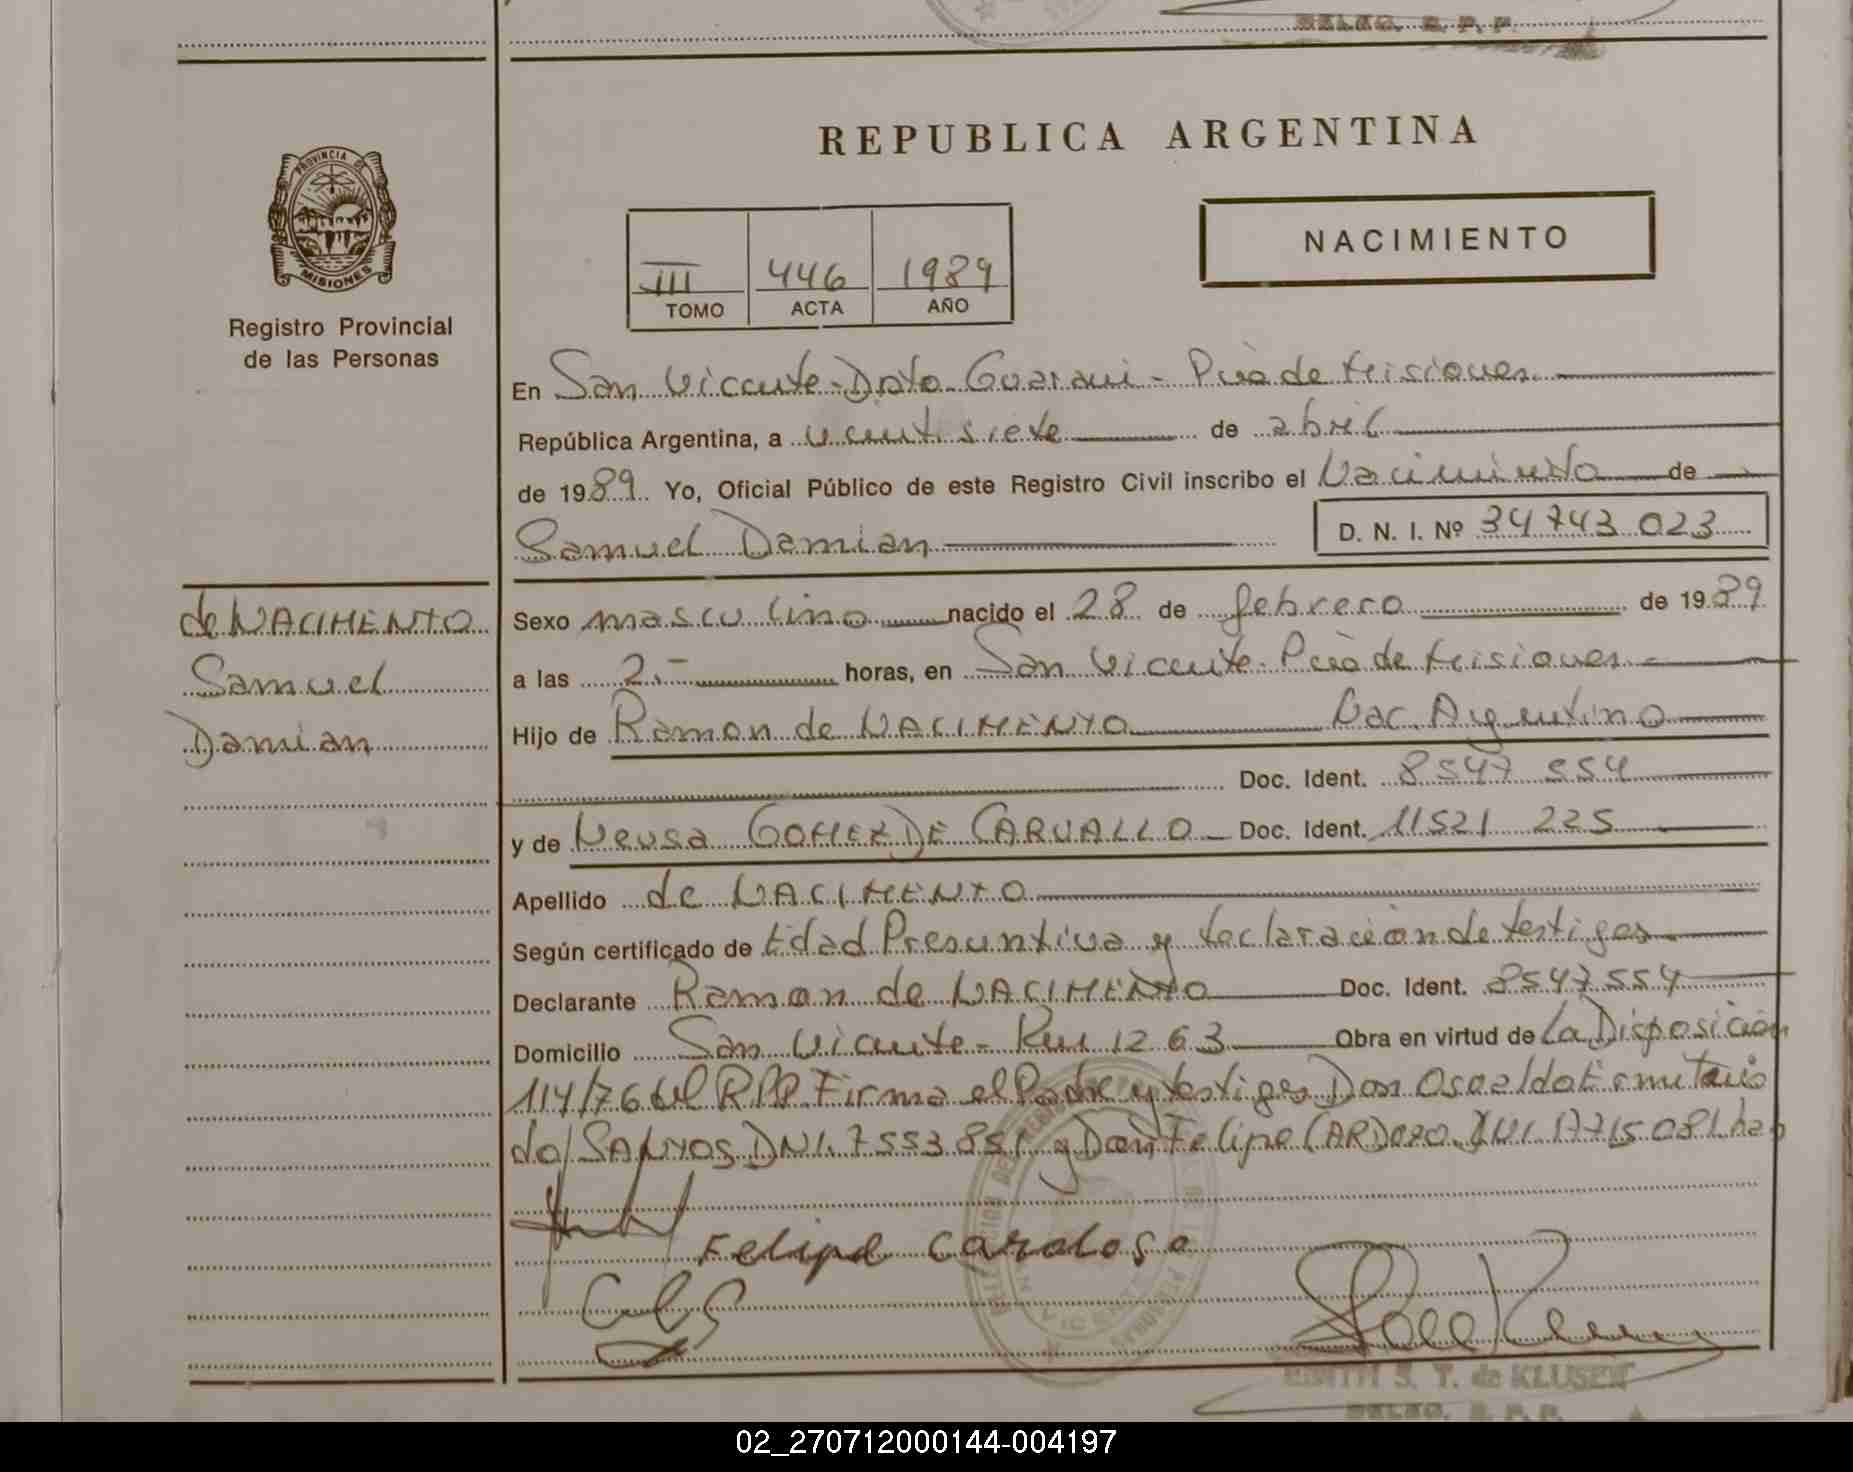 DELEG. R. P. P.
REPUBLICA ARGENTINA
PROVINCIA DE
MISIONES
Registro Provincial
de las Personas
III 446 1989
TOMO ACTA AÑO
NACIMIENTO
En San Vicente - Dpto Guarani - Pcia de Misiones
República Argentina, a veintisiete de abril
de 1989 Yo, Oficial Público de este Registro Civil inscribo el Nacimiento de
Samuel Damian D. N. I. Nº 34743 023
de NACIMENTO
Samuel
Damian
Sexo masculino nacido el 28 de febrero de 1989
a las 2.- horas, en San Vicente - Pcia de Misiones -
Hijo de Ramon de NACIMENTO Nac. Argentino
Doc. Ident. 8547 554
y de Neusa GOMEZ DE CARVALLO - Doc. Ident. 11521 225
Apellido de NACIMENTO
Según certificado de Edad Presuntiva y declaración de testigos
Declarante Ramon de NACIMENTO Doc. Ident. 8547554
Domicilio San Vicente - Km 1263 Obra en virtud de La Disposición
114/76 del RPP Firma el Padre y testigos Don
SANTOS DNI. 7553851 y Don Felipe CARDOZO 17715081
Felipe Cardoso
EDITH S. T. de KLUSEN
DELEG. R. P. P.
02_270712000144-004197